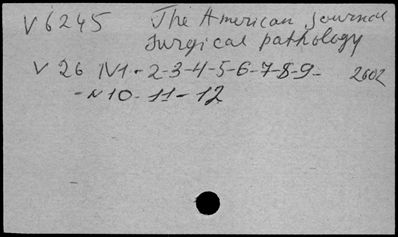 V 6245 The American Journal
Surgical pathology
V 26 N1-2-3-4-5-6-7-8-9- 2002
-N 10-11-12